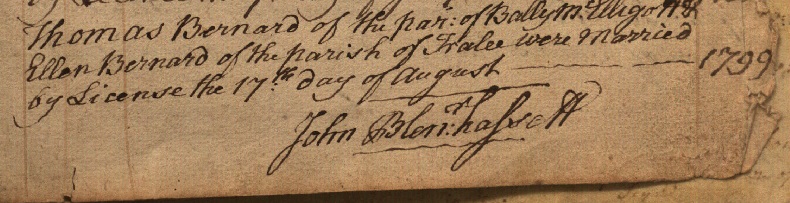 Thomas Bernard of the par: of BallyMcElligott &
Ellen Bernard of the parish of Tralee were Married
by License the 17.th day of August 1799
John Blenrhassett